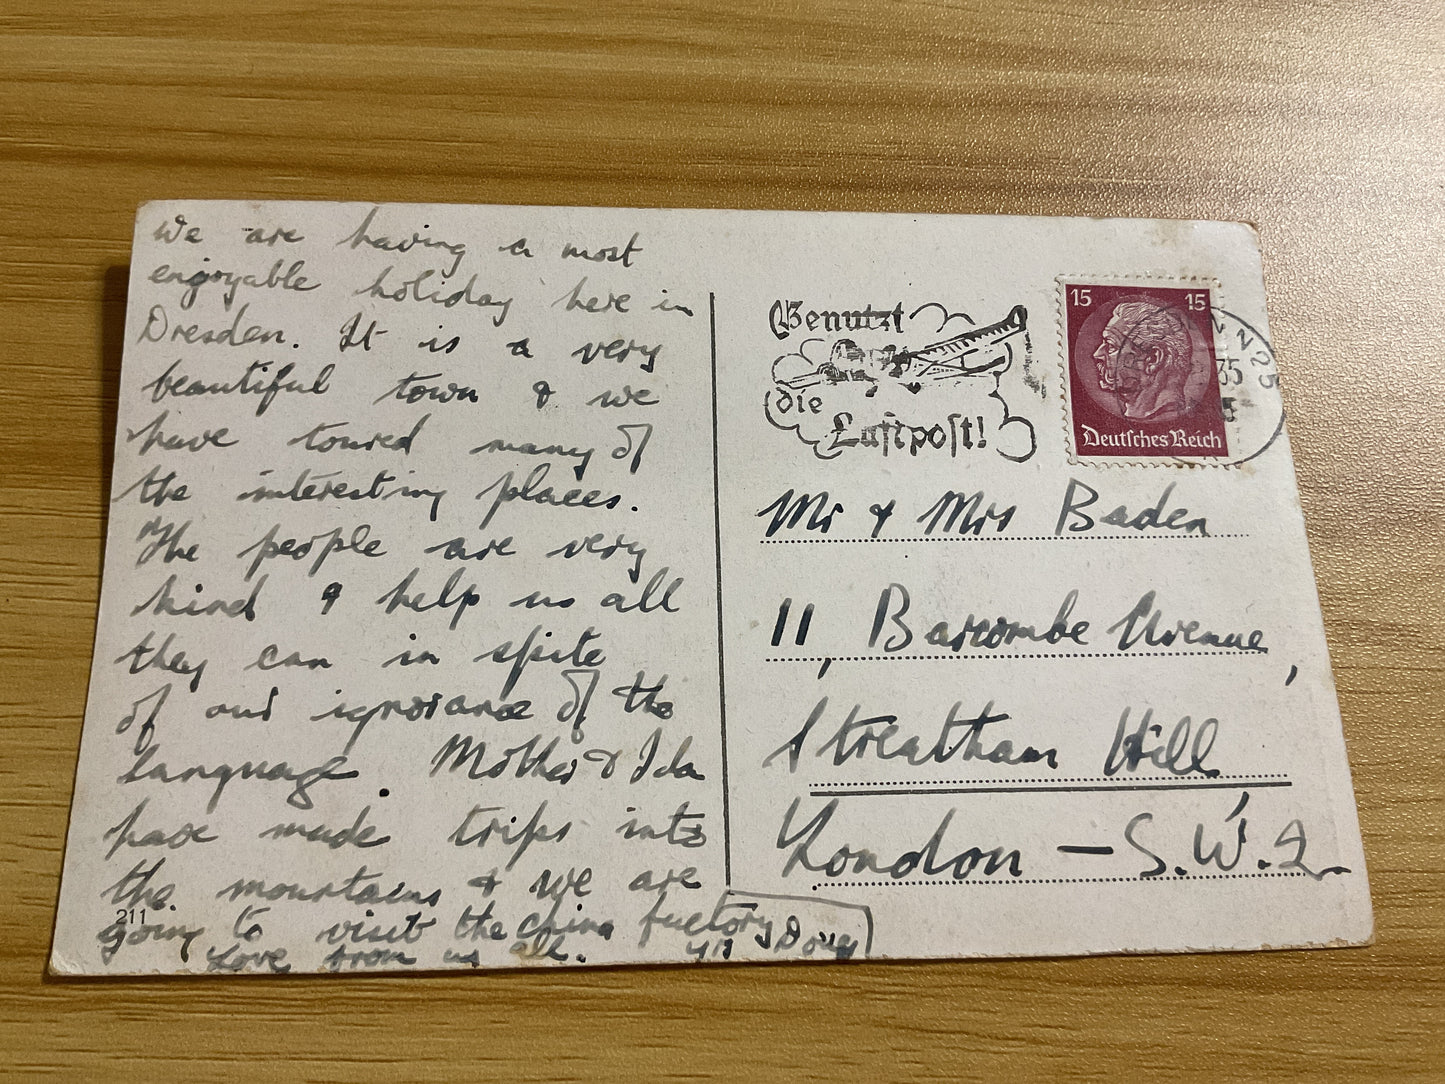 We are having a most
enjoyable holiday here in
Dresden. It is a very
beautiful town & we
have toured many of
the interesting places.
The people are very
kind & help us all
they can in spite
of our ignorance of the
language. Mother & Ida
have made trips into
the mountains & we are
going to visit the china factory
Love from us all. Doug
211
Benutzt
die
Luftpost!
15 15
Deutsches Reich
N25
35
Mr & Mrs Baden
11, Barcombe Avenue,
Streatham Hill,
London – S.W.2.